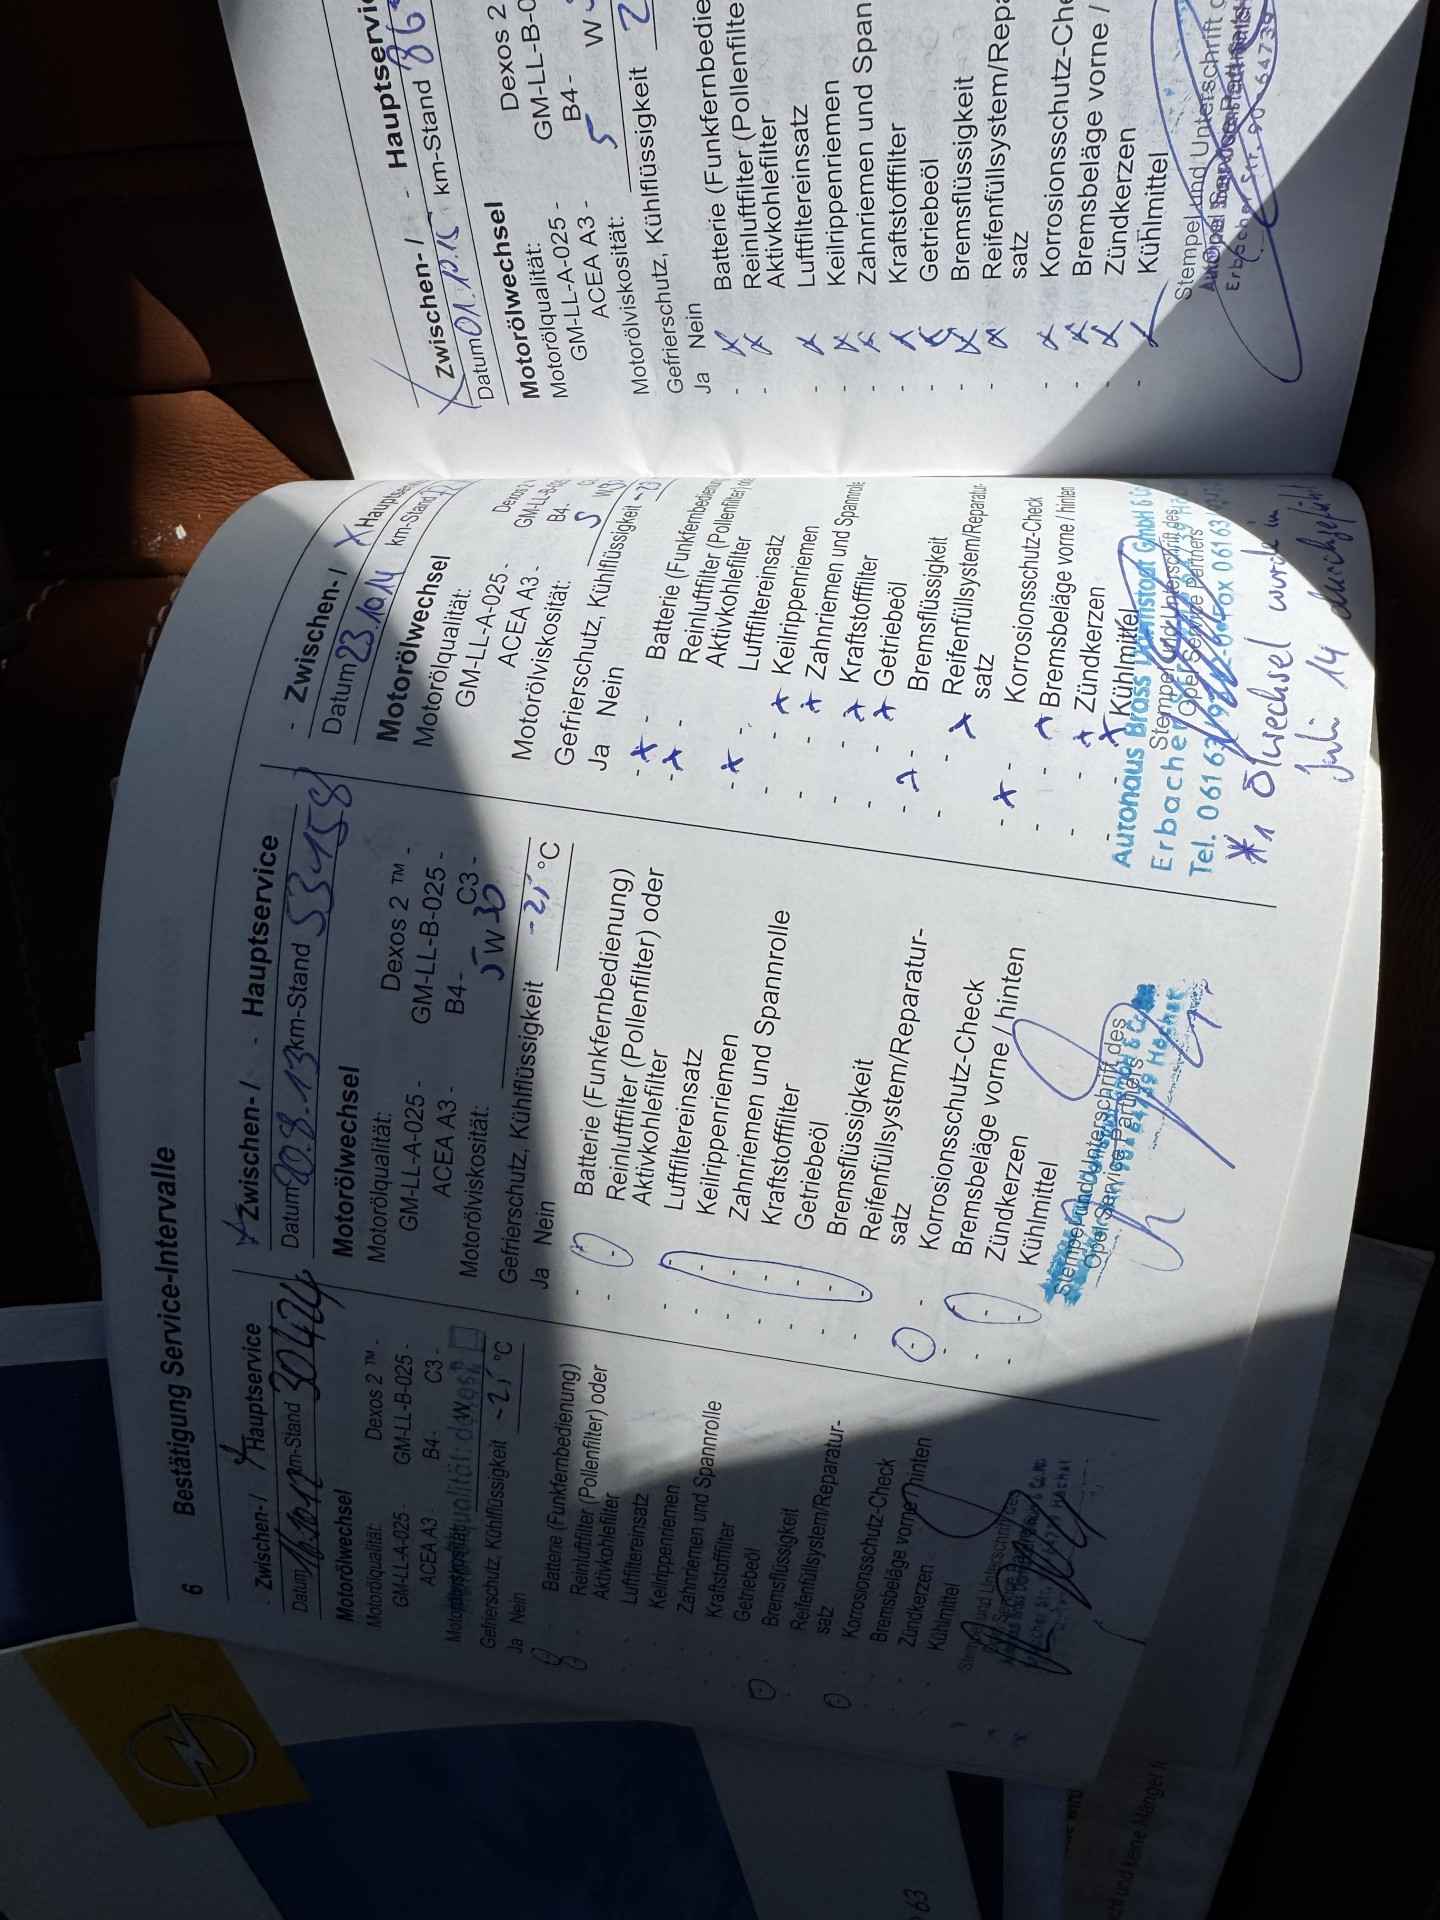 6 Bestätigung Service-Intervalle
Zwischen- / Hauptservice
Datum 16.10.12 km-Stand 30424
Motorölwechsel
Motorölqualität: Dexos 2 ™ -
GM-LL-A-025 - GM-LL-B-025 -
ACEA A3 - B4 - C3 -
Gefrierschutz, Kühlflüssigkeit -25 °C
Ja Nein
Batterie (Funkfernbedienung)
Reinluftfilter (Pollenfilter) oder
Aktivkohlefilter
Luftfiltereinsatz
Keilrippenriemen
Zahnriemen und Spannrolle
Kraftstofffilter
Getriebeöl
Bremsflüssigkeit
Reifenfüllsystem/Reparatur-
satz
Korrosionsschutz-Check
Bremsbeläge vorne / hinten
Zündkerzen
Kühlmittel
Stempel und Unterschrift des
x Zwischen- / - Hauptservice
Datum 20.8.13 km-Stand 53458
Motorölwechsel
Motorölqualität: Dexos 2 ™ -
GM-LL-A-025 - GM-LL-B-025 -
ACEA A3 - B4 - C3 -
Motorölviskosität: 5 W 30
Gefrierschutz, Kühlflüssigkeit -25 °C
Ja Nein
Batterie (Funkfernbedienung)
Reinluftfilter (Pollenfilter) oder
Aktivkohlefilter
Luftfiltereinsatz
Keilrippenriemen
Zahnriemen und Spannrolle
Kraftstofffilter
Getriebeöl
Bremsflüssigkeit
Reifenfüllsystem/Reparatur-
satz
Korrosionsschutz-Check
Bremsbeläge vorne / hinten
Zündkerzen
Kühlmittel
Stempel und Unterschrift des
Opel Service Partners
- Zwischen- / x Hauptserv
Datum 23.10.14 km-Stand
Motorölwechsel
Motorölqualität: Dexos 2
GM-LL-A-025 - GM-LL-B-02
ACEA A3 - B4 -
Motorölviskosität: 5 W 3
Gefrierschutz, Kühlflüssigkeit -25
Ja Nein
Batterie (Funkfernbedienung
Reinluftfilter (Pollenfilter)
Aktivkohlefilter
Luftfiltereinsatz
Keilrippenriemen
Zahnriemen und Spannrolle
Kraftstofffilter
Getriebeöl
Bremsflüssigkeit
Reifenfüllsystem/Reparatur-
satz
Korrosionsschutz-Check
Bremsbeläge vorne / hinten
Zündkerzen
Kühlmittel
Autohaus Brass GmbH &
Stempel und Unterschrift des
Opel Service Partners
Erbacher
Tel. 06163 Fax 06163
*1 Ölwechsel wurde im
Juli 14 durchgeführt
x Zwischen- / - Hauptservic
Datum 01.12.15 km-Stand 86
Motorölwechsel
Motorölqualität: Dexos 2
GM-LL-A-025 - GM-LL-B-0
ACEA A3 - B4 -
Motorölviskosität: 5 W
Gefrierschutz, Kühlflüssigkeit 2
Ja Nein
Batterie (Funkfernbedie
Reinluftfilter (Pollenfilte
Aktivkohlefilter
Luftfiltereinsatz
Keilrippenriemen
Zahnriemen und Span
Kraftstofffilter
Getriebeöl
Bremsflüssigkeit
Reifenfüllsystem/Repa
satz
Korrosionsschutz-Che
Bremsbeläge vorne /
Zündkerzen
Kühlmittel
Stempel und Unterschrift d
Erbacher Str. 90 64739
und keine Mängel
63